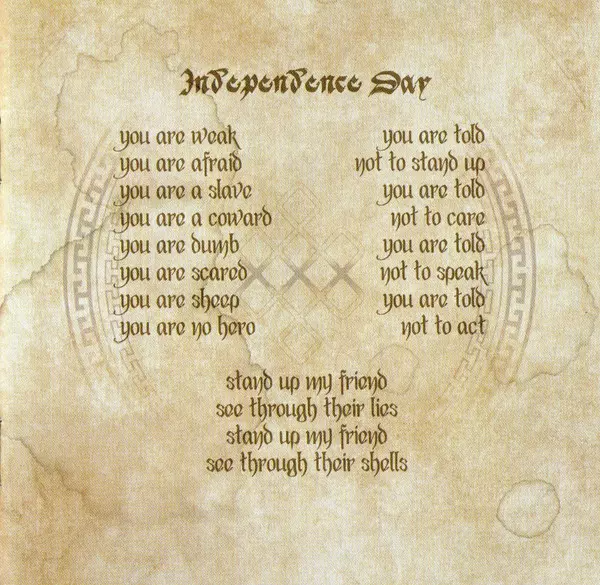 Independence Day
you are weak
you are afraid
you are a slave
you are a coward
you are dumb
you are scared
you are sheep
you are no hero
you are told
not to stand up
you are told
not to care
you are told
not to speak
you are told
not to act
stand up my friend
see through their lies
stand up my friend
see through their shells